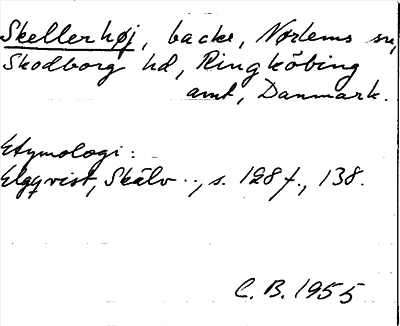 Skellerhøj, backe, Nørlems sn,
Skodborg hd, Ringköbing
amt, Danmark.
Etymologi:
Elgqvist, Skälv.., s. 128 f., 138.
C. B. 1955